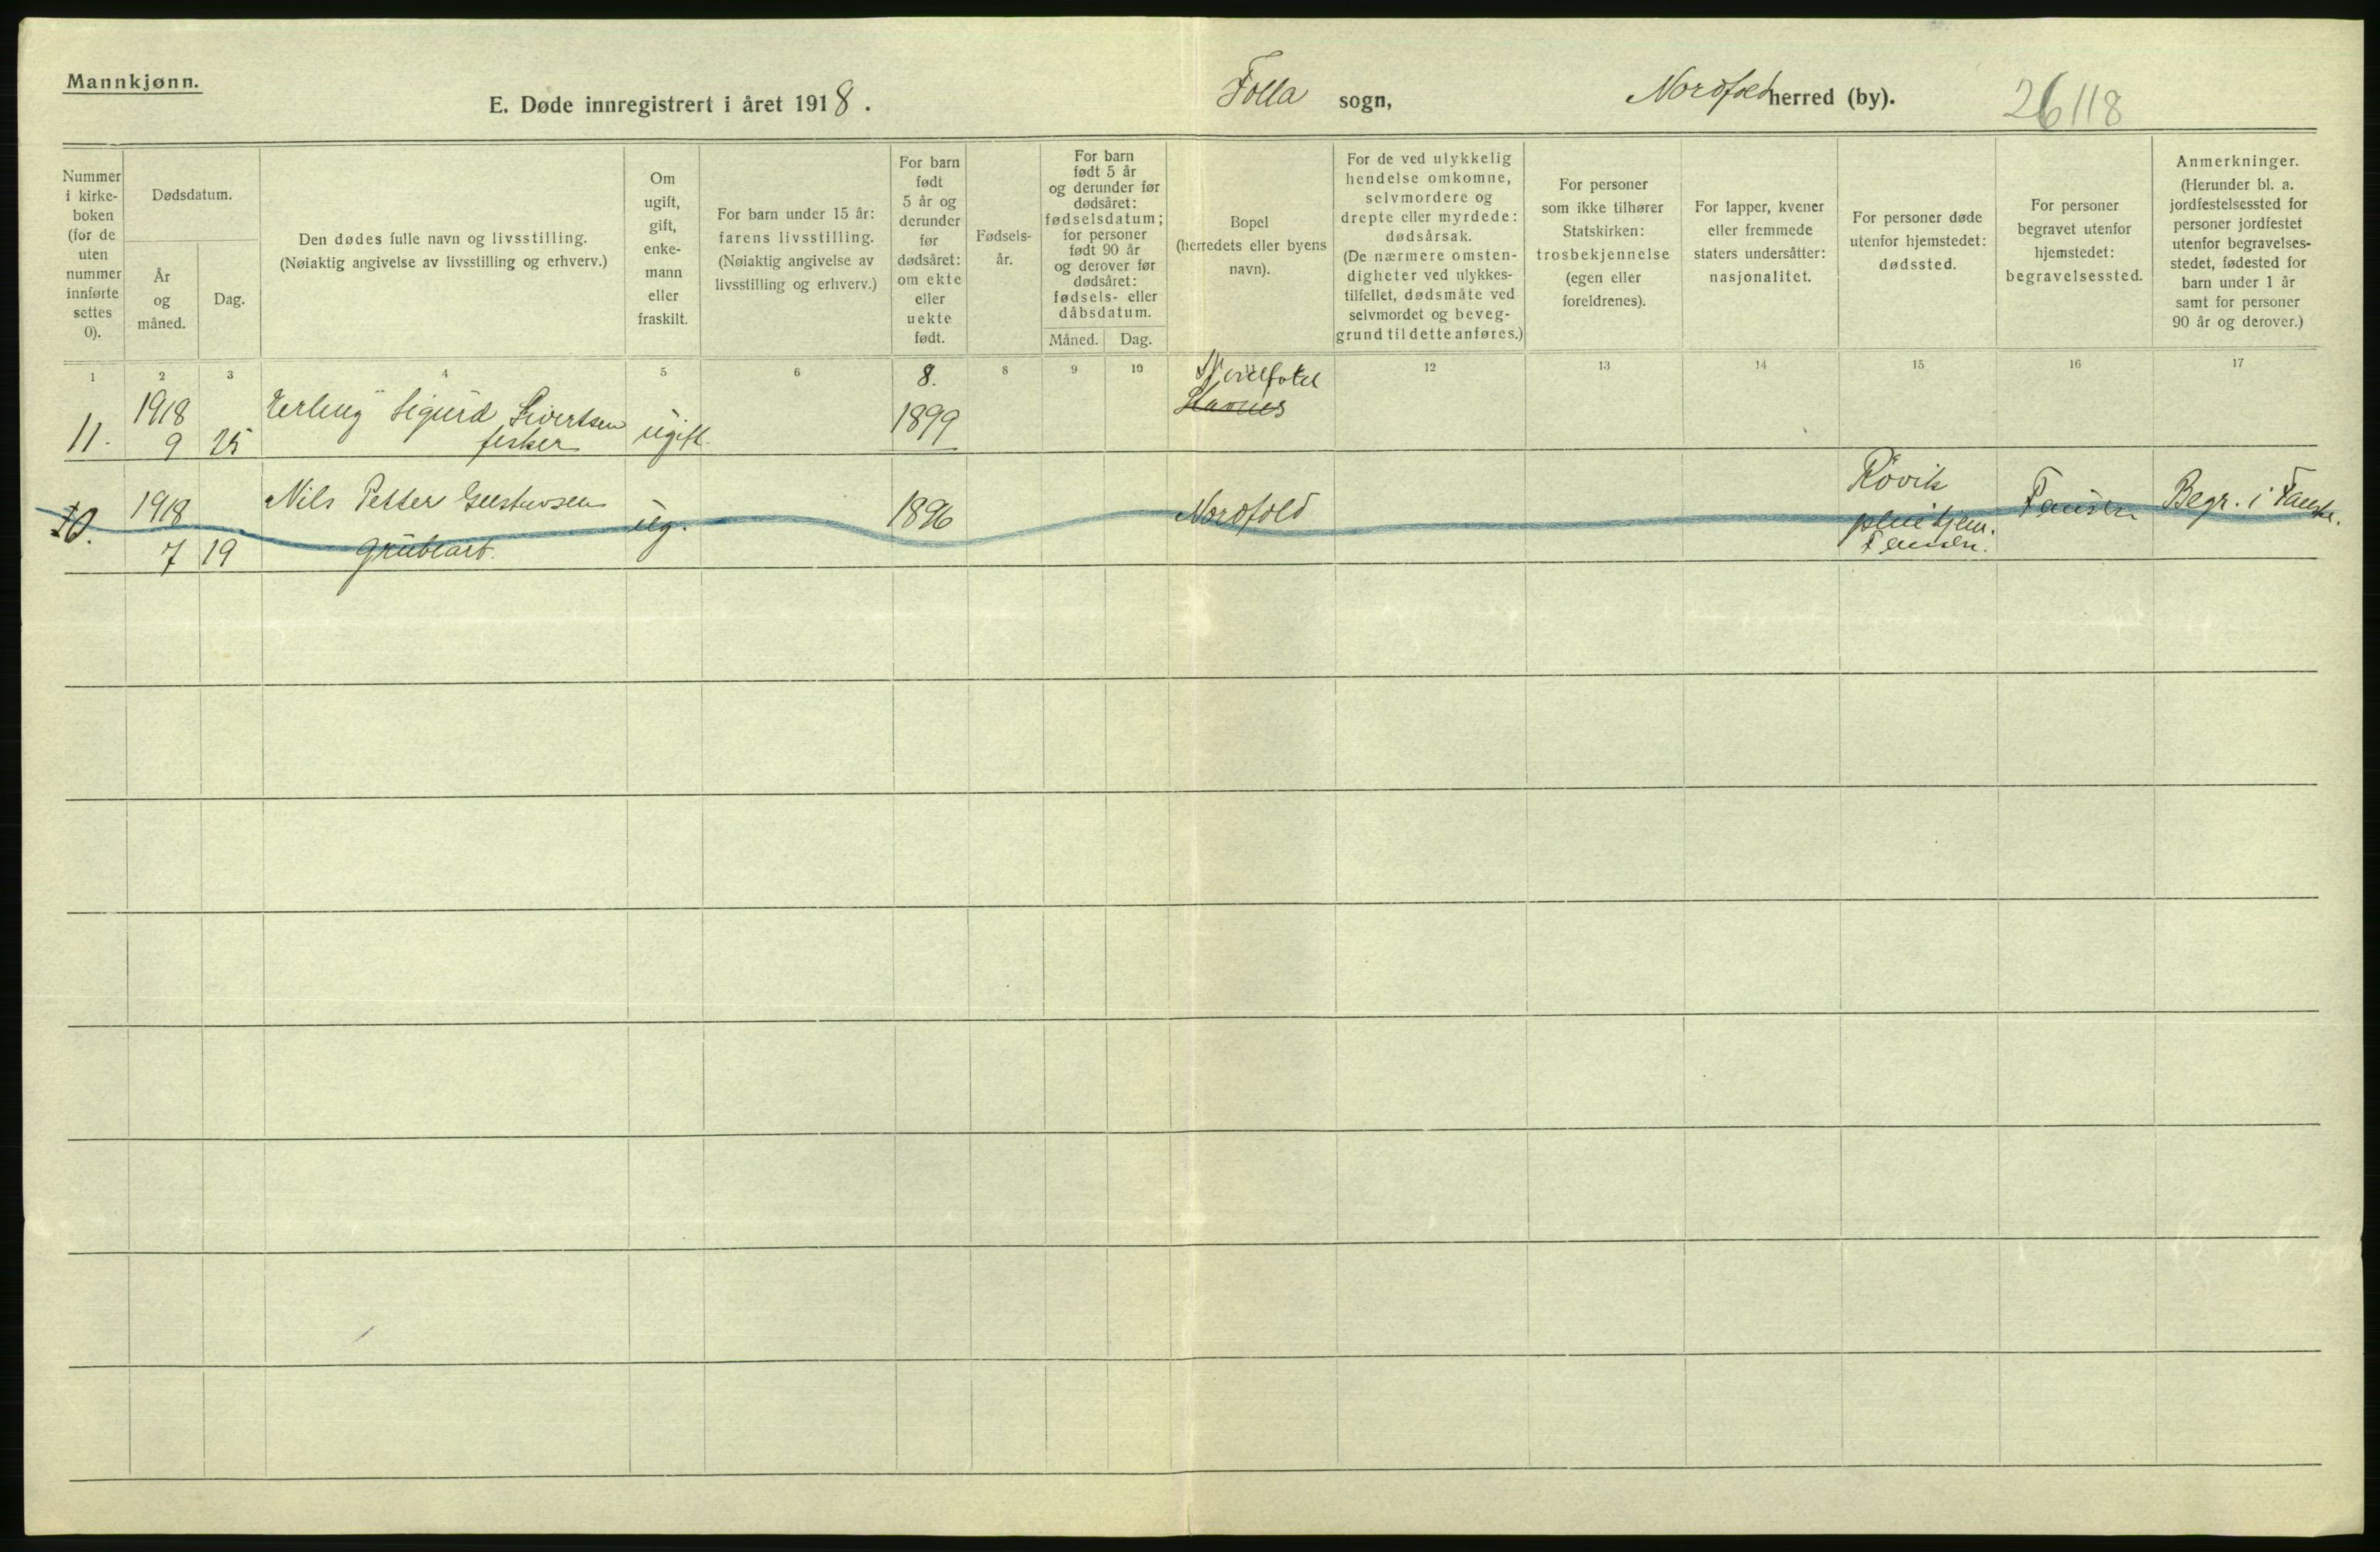 Mannkjønn.
E. Døde innregistrert i året 1918.
Folla sogn,
Nordfold herred (by).
26118
Nummer
i kirke-
boken
(for de
uten
nummer
innførte
settes
0).
Dødsdatum.
År
og
måned.
Dag.
Den dødes fulle navn og livsstilling.
(Nøiaktig angivelse av livsstilling og erhverv.)
Om
ugift,
gift,
enke-
mann
eller
fraskilt.
For barn under 15 år:
farens livsstilling.
(Nøiaktig angivelse av
livsstilling og erhverv.)
For barn
født
5 år og
derunder
før
dødsåret:
om ekte
eller
uekte
født.
Fødsels-
år.
For barn
født 5 år
og derunder før
dødsåret:
fødselsdatum;
for personer
født 90 år
og derover før
dødsåret:
fødsels- eller
dåbsdatum.
Måned.
Dag.
Bopel
(herredets eller byens
navn).
For de ved ulykkelig
hendelse omkomne,
selvmordere og
drepte eller myrdede:
dødsårsak.
(De nærmere omsten-
digheter ved ulykkes-
tilfellet, dødsmåte ved
selvmordet og beveg-
grund til dette anføres.)
For personer
som ikke tilhører
Statskirken:
trosbekjennelse
(egen eller
foreldrenes).
For lapper, kvener
eller fremmede
staters undersåtter:
nasjonalitet.
For personer døde
utenfor hjemstedet:
dødssted.
For personer
begravet utenfor
hjemstedet:
begravelsessted.
Anmerkninger.
(Herunder bl. a.
jordfestelsessted for
personer jordfestet
utenfor begravelses-
stedet, fødested for
barn under 1 år
samt for personer
90 år og derover.)
1 2 3 4 5 6 8. 8 9 10 12 13 14 15 16 17
11.
1918
9
25
Erling Sigurd Sivertsen
fisker
ugift.
1899
Nordfold
10.
1918
7
19
Nils Petter Gustavsen
grubearb.
ug.
1896
Nordfold
Røvik
pleiehjem.
Fauske.
Fauske
Begr. i Fauske.